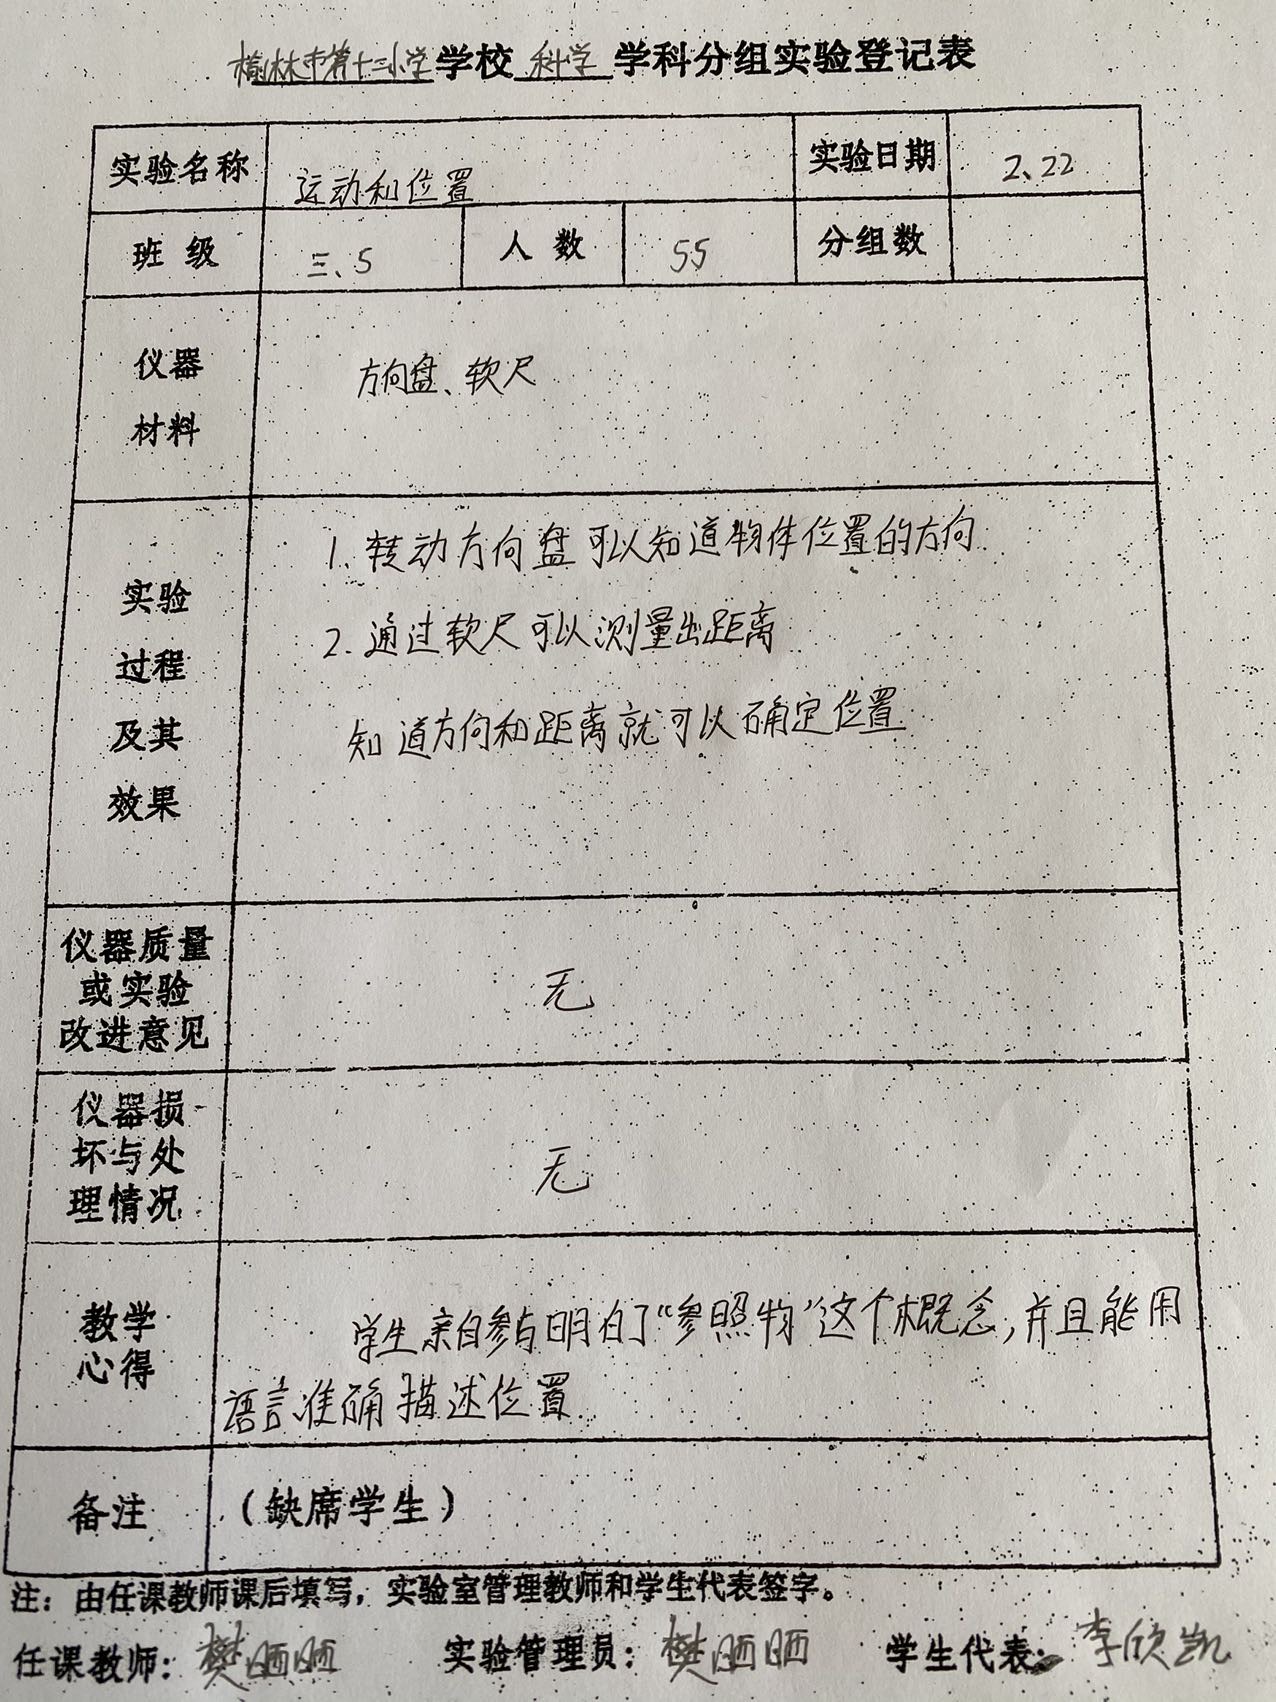 榆林市第十二小学学校 科学 学科分组实验登记表
实验名称 运动和位置 实验日期 2、22
班级 三、5 人数 55 分组数
仪器
材料
方向盘、软尺
实验
过程
及其
效果
1.转动方向盘可以知道物体位置的方向
2.通过软尺可以测量出距离
知道方向和距离就可以确定位置
仪器质量
或实验
改进意见
无
仪器损
坏与处
理情况
无
教学
心得
学生亲自参与明白了“参照物”这个概念,并且能用
语言准确描述位置
备注 (缺席学生)
注：由任课教师课后填写，实验室管理教师和学生代表签字。
任课教师：樊晒晒 实验管理员：樊晒晒 学生代表：李欣凯